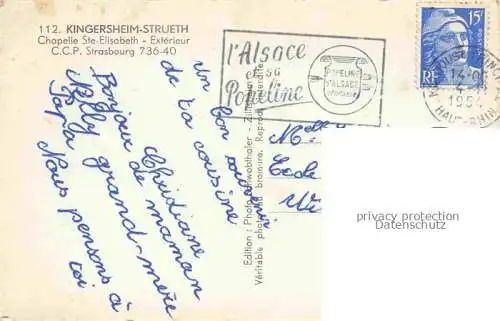 112. KINGERSHEIM-STRUETH
Chapelle Ste-Elisabeth - Extérieur
C.C.P. Strasbourg 736-40
l'Alsace
et sa
Popeline
POPELINE
D'ALSACE
15F
RF
14-
4-
1954
HAUT-RHIN
un bon souvenir
de ta cousine
Christiane
Bonjour de maman
Nelly grand-mère
Papa
Nous pensons à
toi
Melle
Ecole
Edition: Photo
Véritable photo au bromure. Reprod. interdite
privacy protection
Datenschutz